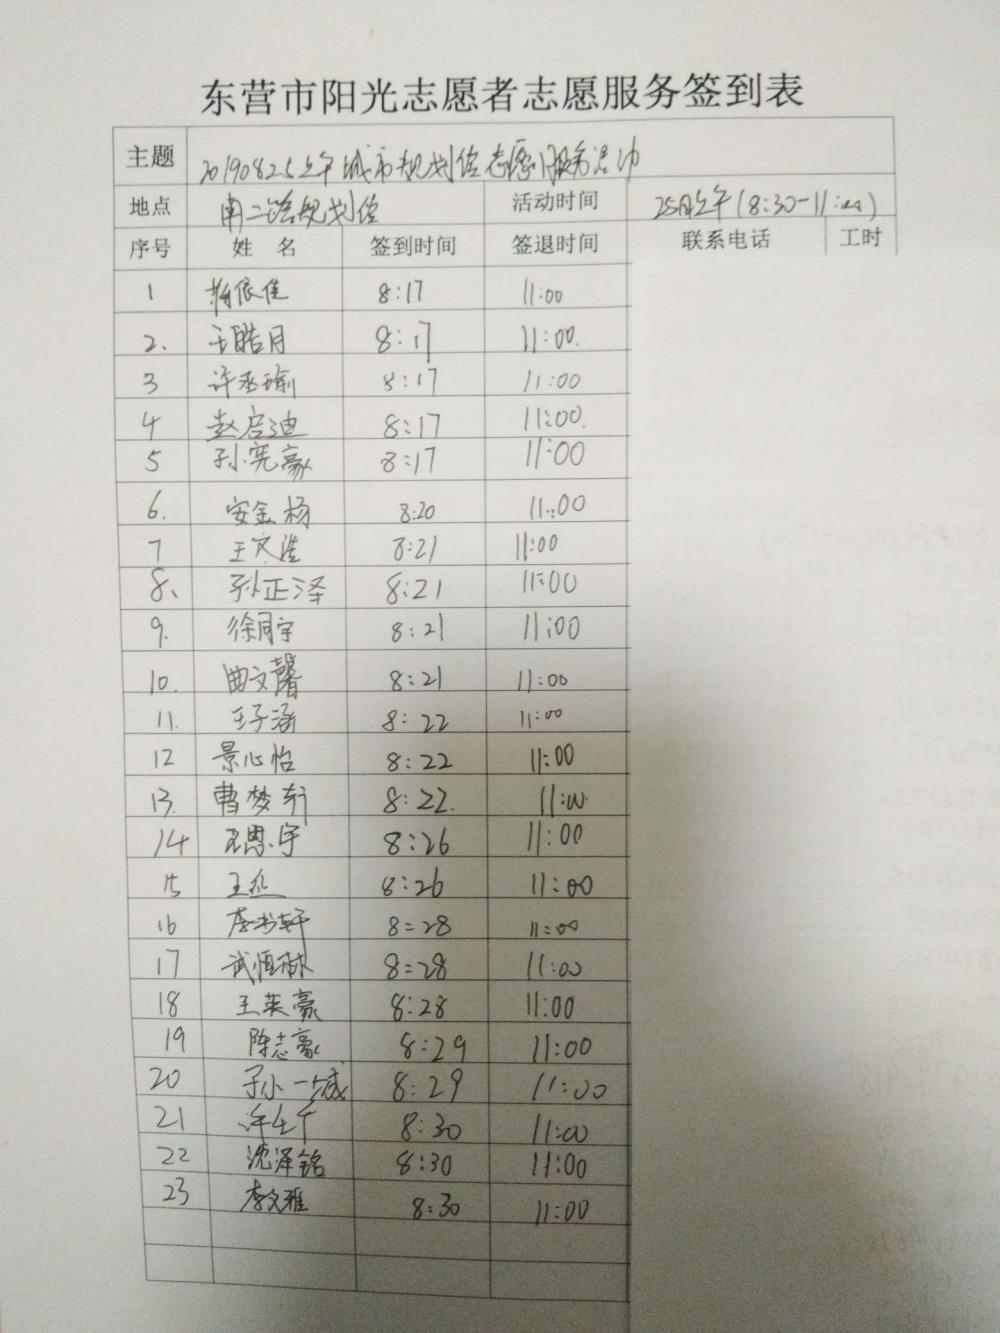 东营市阳光志愿者志愿服务签到表
主题 20190825上午城市规划馆志愿服务活动
地点 南二路规划馆 活动时间 25日上午(8:30-11:00)
序号 姓名 签到时间 签退时间 联系电话 工时
1 依佳 8:17 11:00
2. 王皓月 8:17 11:00.
3 许丞瑜 8:17 11:00
4 赵启迪 8:17 11:00.
5 孙宪豪 8:17 11:00
6. 安金杨 8:20 11:00
7 王文浩 8:21 11:00
8、 孙正泽 8:21 11:00
9. 徐同宇 8:21 11:00
10. 曲文馨 8:21 11:00
11. 王子涵 8:22 11:00
12 景心怡 8:22 11:00
13. 曹梦轩 8:22. 11:00
14 思宇 8:26 11:00
15 王 8:26 11:00
16 李书轩 8:28 11:00
17 武恒 8:28 11:00
18 王英豪 8:28 11:00
19 陈志豪 8:29 11:00
20 孙一城 8:29 11:00
21 许 8:30 11:00
22 沈泽铭 8:30 11:00
23 李文雅 8:30 11:00